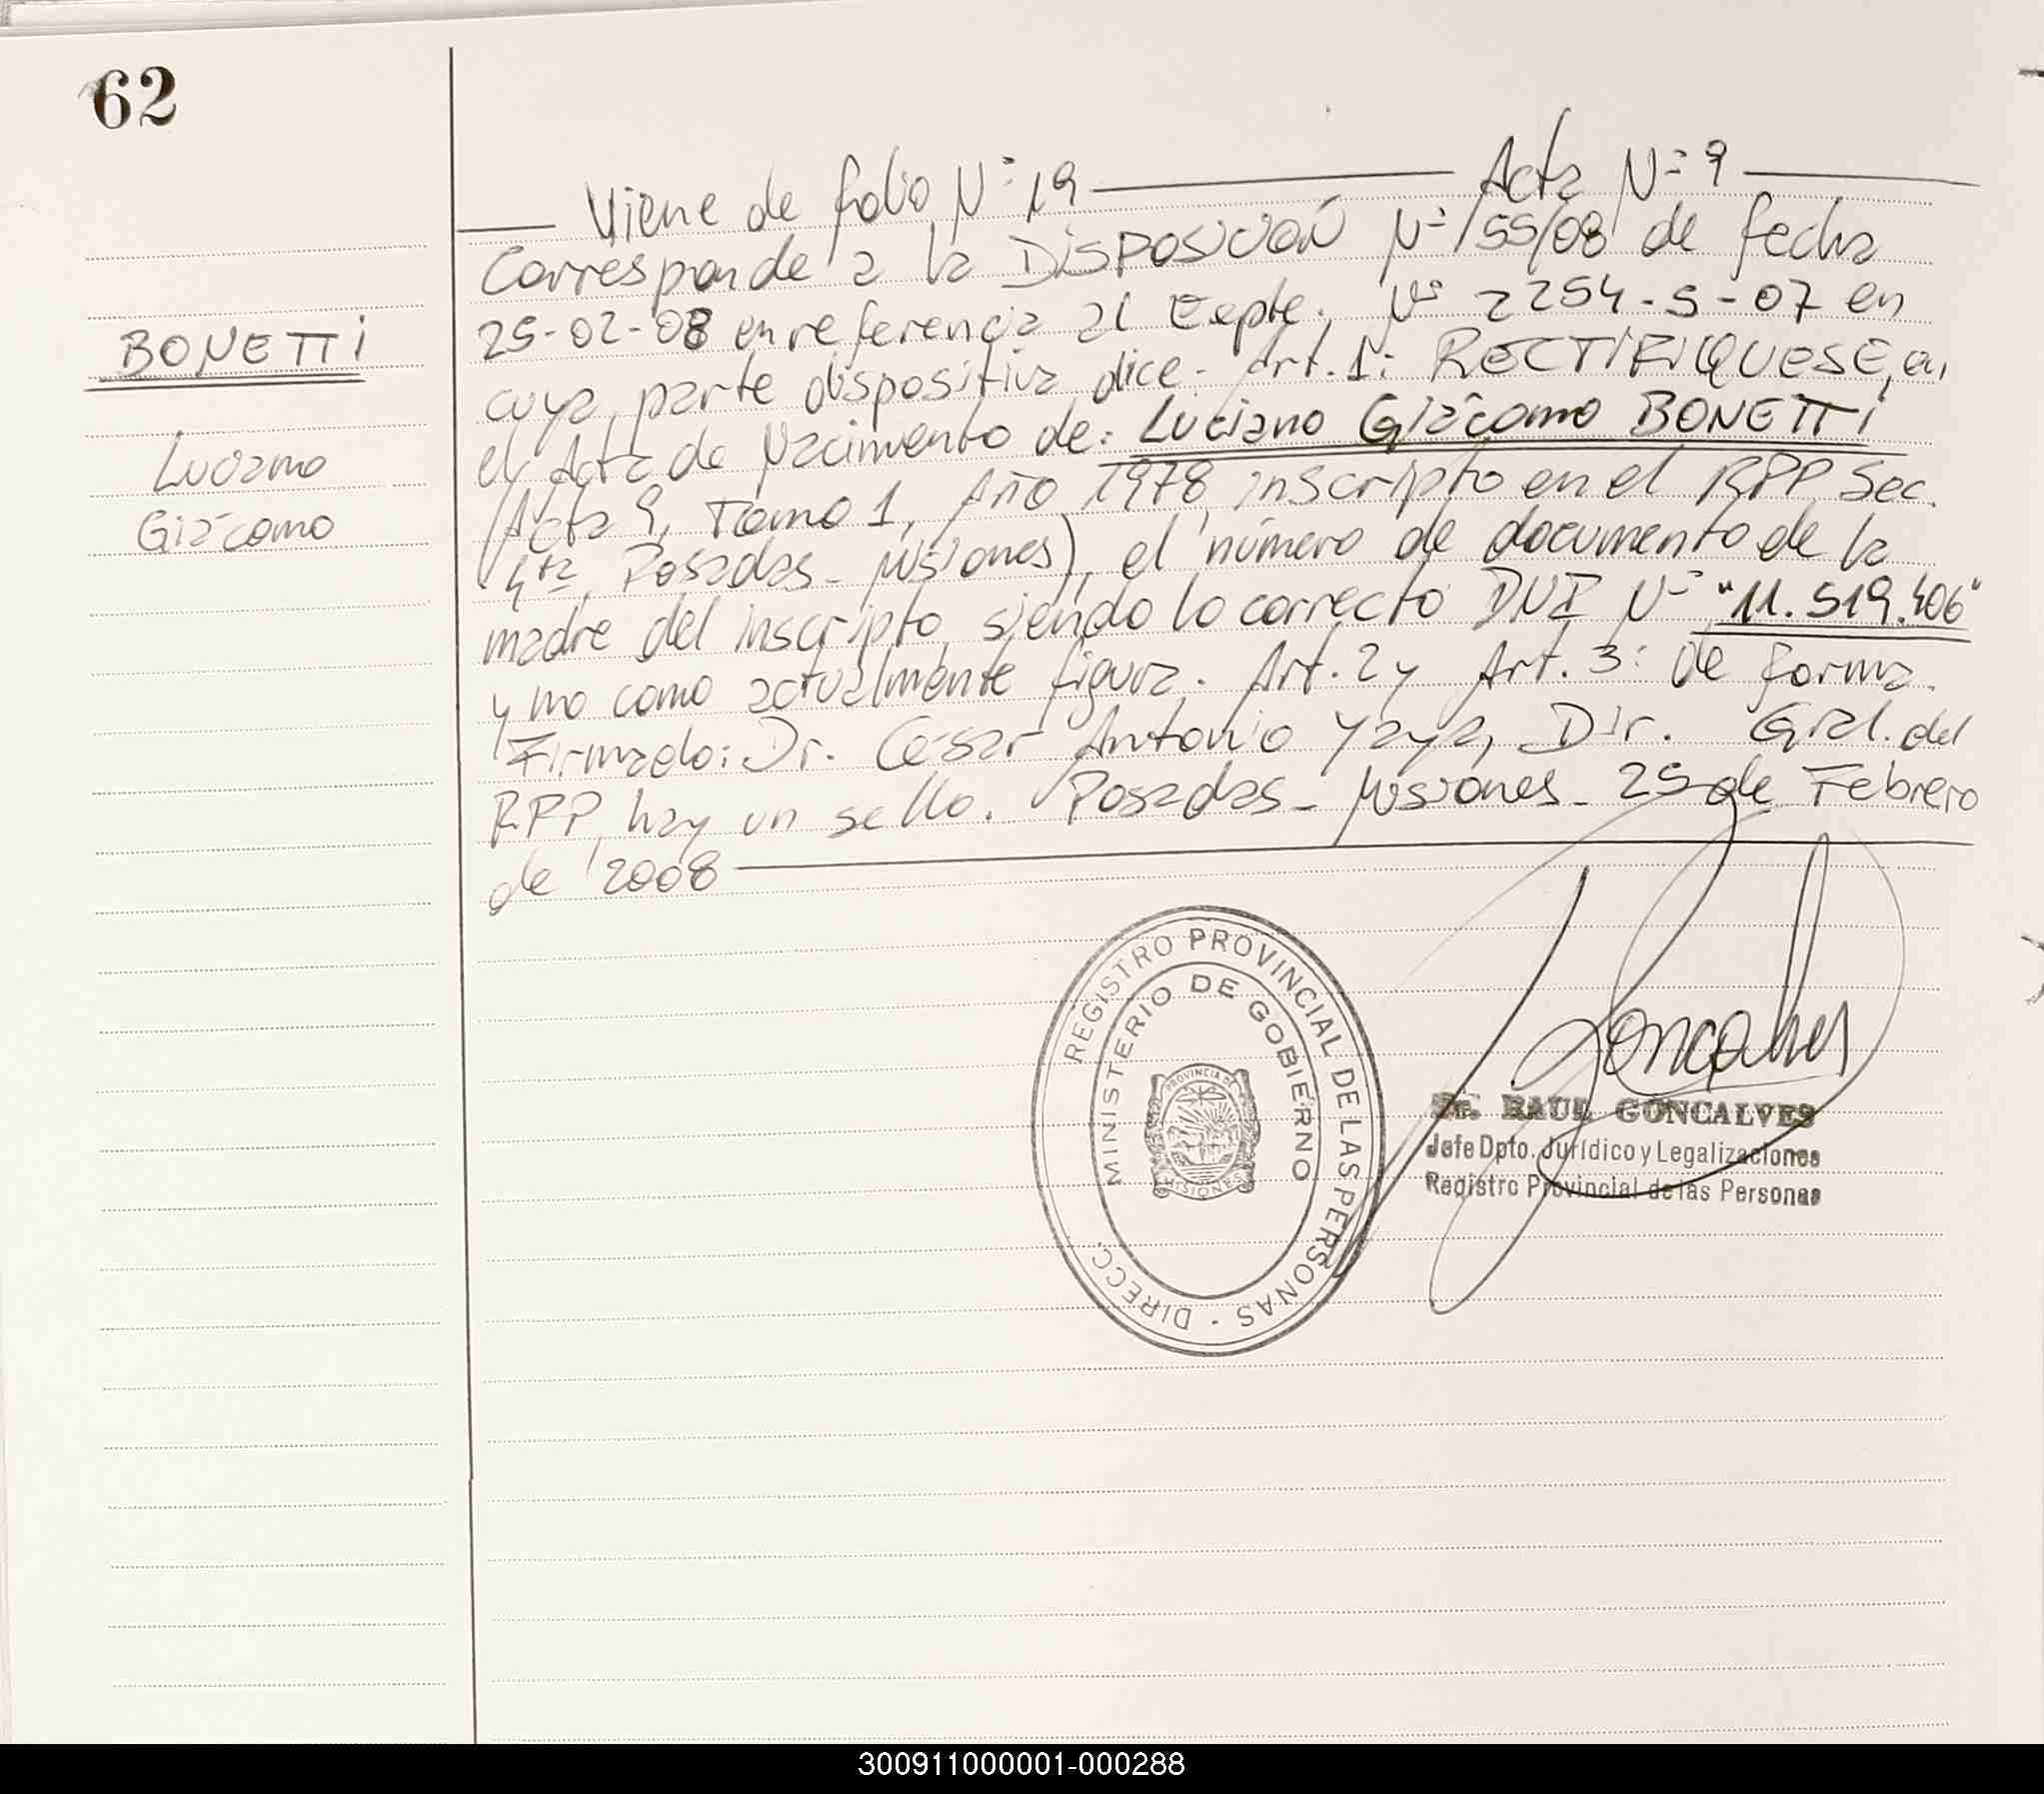 62
BONETTi
Luciano
Giácomo
Viene de folio Nº 19 Acta Nº 9
Corresponde a la DiSPOSiCiÓN Nº 155/08 de fecha
25-02-08 en referencia al Expte. Nº 2254-S-07 en
cuya parte dispositiva dice. Art. 1: RECTiFiQUESE, en
el Acta de Nacimiento de: Luciano Giácomo BONETTi
(Acta 9, Tomo 1, Año 1978, inscripto en el RPP, Sec.
4ta, Posadas - Misiones), el número de documento de la
madre del inscripto, siendo lo correcto DNI Nº "11.519.406"
y no como actualmente figura. Art. 2 y Art. 3: de forma.
Firmado: Dr. César Antonio Yaya, Dir. Gral. del
RPP, hay un sello. Posadas - Misiones - 25 de Febrero
de 2008
REGISTRO PROVINCIAL DE LAS PERSONAS - DIRECC.
MINISTERIO DE GOBIERNO
PROVINCIA DE
MISIONES
Goncalves
Dr. RAUL GONCALVES
Jefe Dpto. Jurídico y Legalizaciones
Registro Provincial de las Personas
300911000001-000288